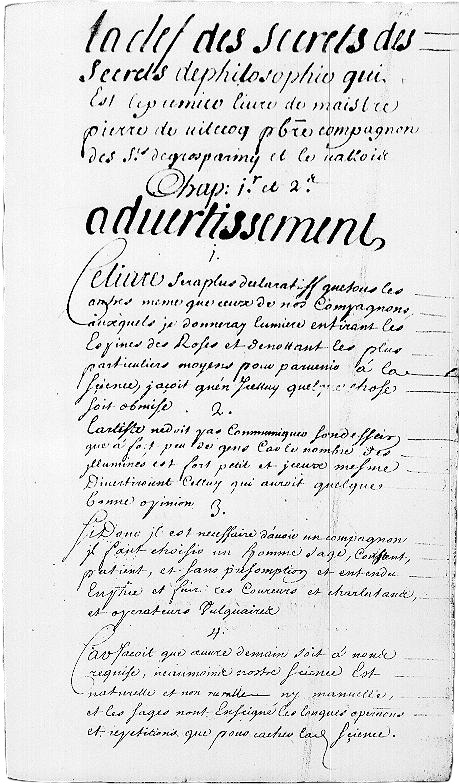 la clef des secrets des
Secrets de philosophie qui
Est le premier livre de maistre
pierre de vitecoq pbre compagnon
des Srs de grosparmy et le vallois
Chap: 1r et 2e
aduertissement
1.
Ce liure sera plus declaratif que tous les
autres meme que ceux de nos Compagnons
auxquels je donneray lumiere en tirant les
Espines des Roses et denottant les plus
particuliers moyens pour parvenir á la
science, jaçoit qu'en Jcelluy quelque chose
soit obmise. 2.
Lartiste ne doit pas Communiquer son dessein
que á fort peu de gens Car le nombre des
illumines est fort petit et
Divertiroient Celluy qui auroit quelque
bonne opinion 3.
Si Donc jl est necessaire d'auoir un compagnon
jl faut choisir un homme sage, Constant,
patient, et sans presomption et entendu
En phie et fuir ces Coureurs et charlatans,
et operateurs Vulguaires
4.
Car Jacoit que œuure de main soit à nous
requise, neanmoins nostre science Est
naturelle et non ny manuelle,
et les sages nont Enseigné les longues operations
et repetitions que pour cacher la science.